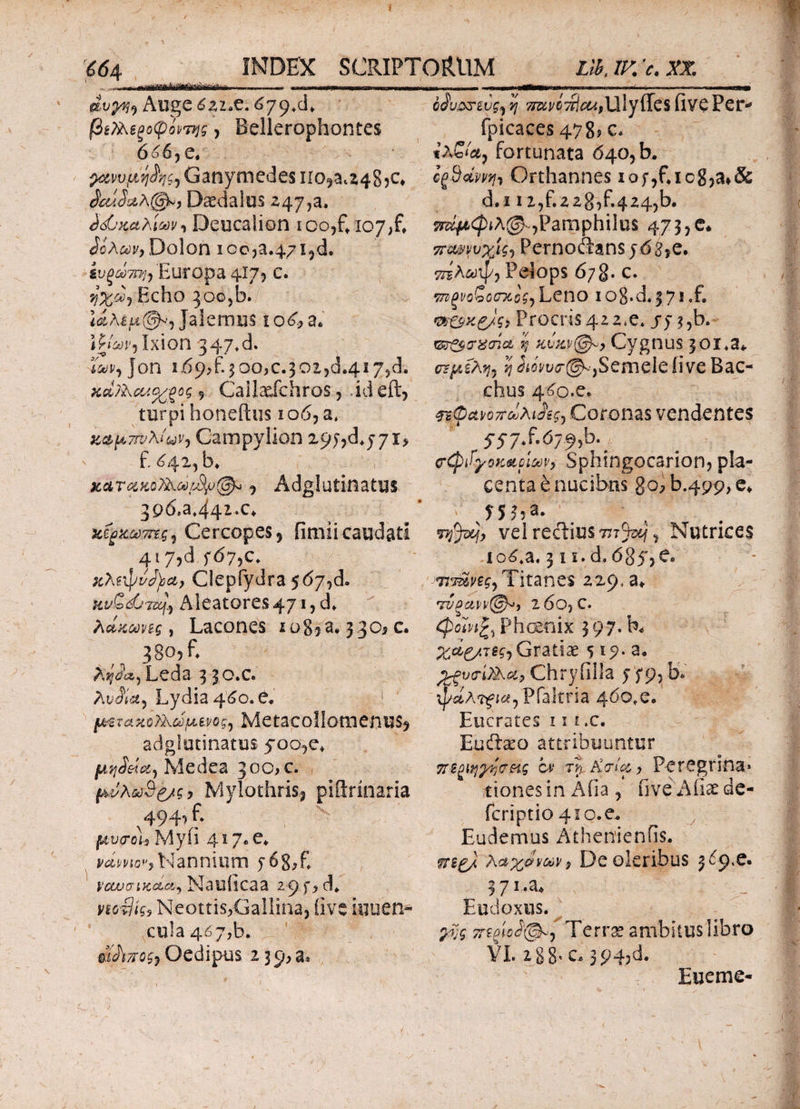 664 INDEX SCRIPTORUM Lib. IV. c. XX.
ἀυγη, Auge 622.e. 679.d.
βελλεροφόντης, Bellerophontes
666, e.
γανυμήδης, Ganymedes 110,a.248,c.
δαίδαλος, Dædalus 247,a.
δευκαλίων, Deucalion 100,f. 107,f.
δόλων, Dolon 100,a.471,d.
ἐυρώπη, Europa 417, c.
ἠχώ, Echo 300,b.
ἰάλεμος, Jalemus 106, a.
ἰξίων, Ixion 347.d.
ἴων, Jon 169,f.300,c.302,d.417,d.
κάλλαισχρος, Callæschros, id est,
turpi honestus 106, a.
καμπυλίων, Campylion 295,d.571,
f. 642, b.
κατακολλώμενος, Adglutinatus
396.a.442.c.
κέρκωπες, Cercopes, simii caudati
417,d 567,c.
κλεψύδρα, Clepsydra 567,d.
κυβευταὶ, Aleatores 471, d.
λάκωνες, Lacones 108, a. 330, c.
380, f.
λήδα, Leda 330.c.
λυδία, Lydia 460. e.
μετακολλώμενος, Metacollomenus,
adglutinatus 500,e.
μηδεία, Medea 300, c.
μύλωθρις, Mylothris, pistrinaria
494, f.
μυσοὶ, Mysi 417. e.
νάννιον, Nannium 568, f.
ναυσικάα, Nausicaa 295, d.
νεοτίὶς, Neottis, Gallina, sive iuuen-
cula 467,b.
οἰδίπος, Oedipus 239, a.
ὀδυσσεὺς, ἢ πανόπται, Ulysses sive Per-
spicaces 478, c.
ὀλβία, fortunata 640, b.
ὀρθάννη, Orthannes 105,f.108,a. &
d. 112,f. 228,f. 424,b.
πάμφιλος, Pamphilus 473, e.
παννυχὶς, Pernoctans 563,e.
πέλωψ, Pelops 678. c.
πορνοβοσκὸς, Leno 108.d. 371.f.
πρόκρις, Procris 422.e. 553,b.
προσουσία ἢ κύκνος, Cygnus 301.a.
σεμέλη, ἢ διόνυσος, Semele sive Bac-
chus 460.e.
στεφανοπώλιδες, Coronas vendentes
557.f.679,b.
σφιγγοκαρίων, Sphingocarion, pla-
centa è nucibus 80, b.499, e.
553, a.
τήθαι, vel rectius τιτθαὶ, Nutrices
106.a. 311. d. 685, e.
τιτᾶνες, Titanes 229, a.
τύραννος, 260, c.
φοῖνιξ, Phœnix 397. b.
χάριτες, Gratiæ 519. a.
χρυσίλλα, Chrysilla 559, b.
ψάλτρια, Psaltria 460.e.
Eucrates 111.c.
Eudæo attribuuntur
περιηγήσεις ἐν τῇ Ασίᾳ, Peregrina-
tiones in Asia, sive Asiæ de-
scriptio 410.e.
Eudemus Atheniensis.
περὶ λαχάνων, De oleribus 369.e.
371.a.
Eudoxus.
γῆς περίοδος, Terræ ambitus libro
VI. 288. c. 394, d.
Eueme-